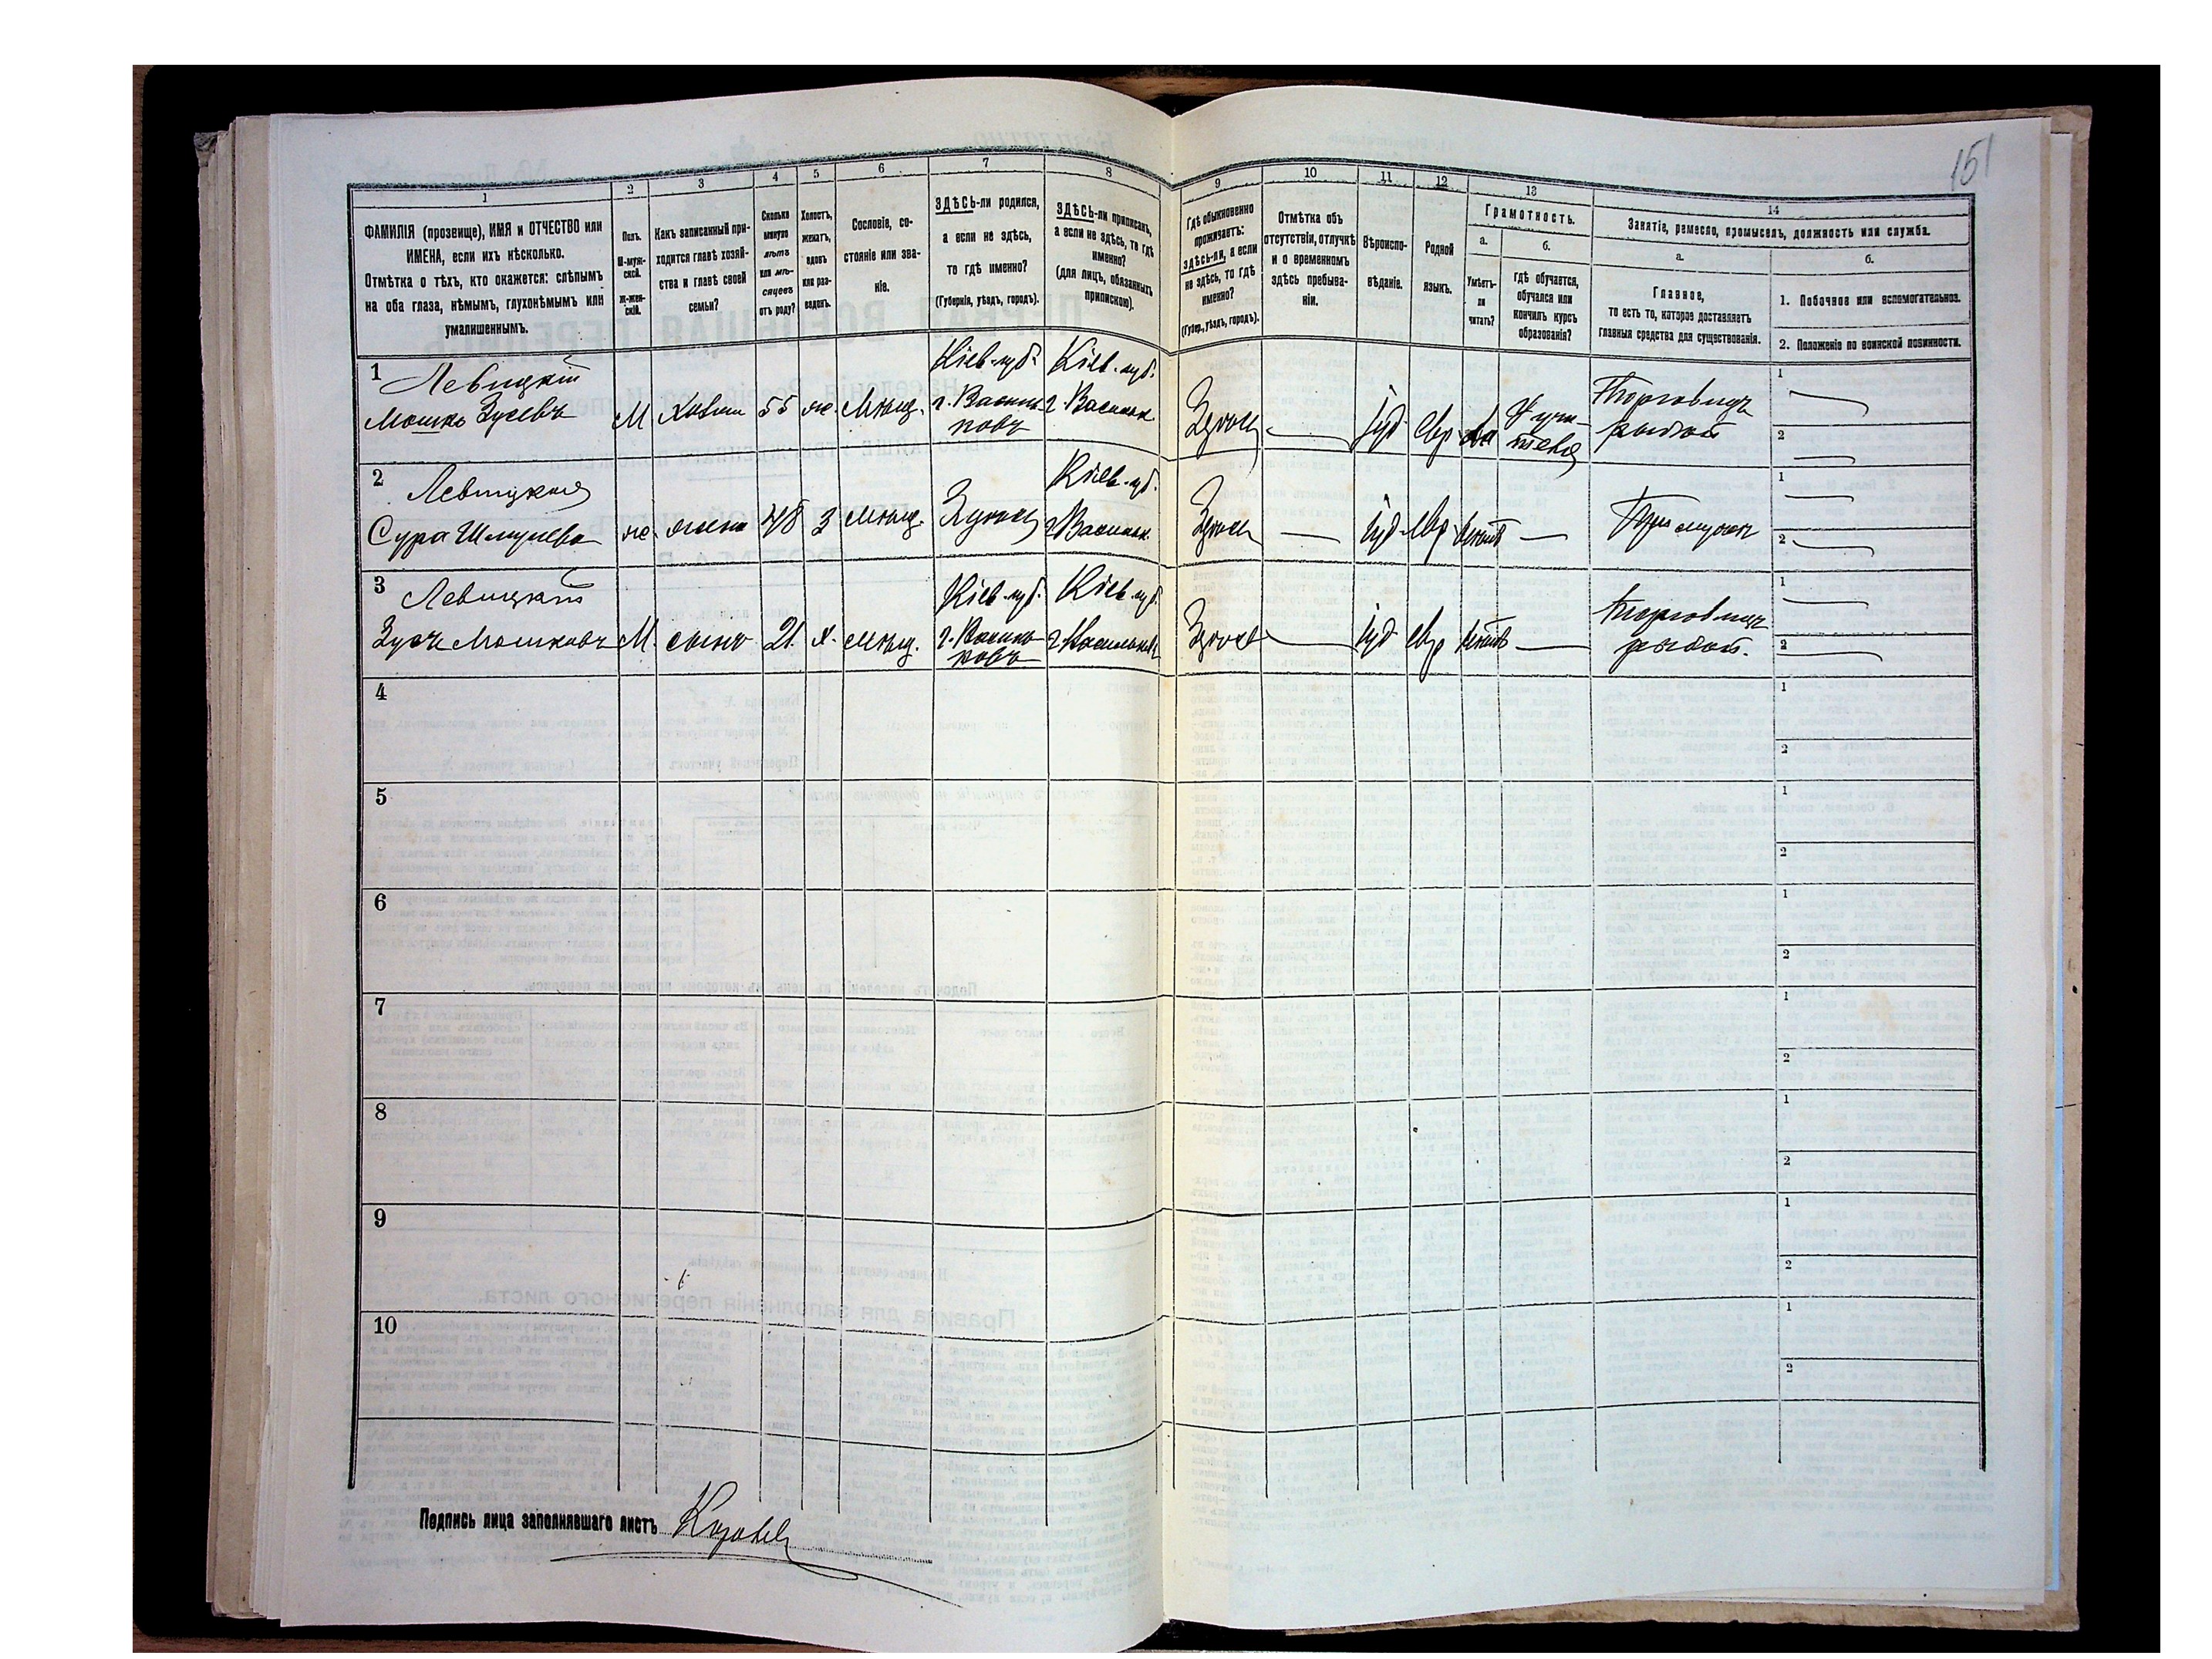 151
1
2
3
4
5
6
7
8
9
10
11
12
13
14
ФАМИЛІЯ (прозвище), ИМЯ и ОТЧЕСТВО или
ИМЕНА, если ихъ нѣсколько.
Отмѣтка о тѣхъ, кто окажется: слѣпымъ
на оба глаза, нѣмымъ, глухонѣмымъ или
умалишеннымъ.
Полъ.
М-муж-
ской.
Ж-жен-
скій.
Какъ записанный при-
ходится главѣ хозяй-
ства и главѣ своей
семьи?
Сколько
минуло
лѣтъ
или мѣ-
сяцевъ
отъ роду?
Холостъ,
женатъ,
вдовъ
или раз-
веденъ.
Сословіе, со-
стояніе или зва-
ніе.
ЗДѢСЬ-ли родился,
а если не здѣсь,
то гдѣ именно?
(Губернія, уѣздъ, городъ).
ЗДѢСЬ-ли приписанъ,
а если не здѣсь, то гдѣ
именно?
(для лицъ, обязанныхъ
припискою).
Гдѣ обыкновенно
проживаетъ:
здѣсь-ли, а если
не здѣсь, то гдѣ
именно?
(Губер., уѣздъ, городъ).
Отмѣтка объ
отсутствіи, отлучкѣ
и о временномъ
здѣсь пребыва-
ніи.
Вѣроиспо-
вѣданіе.
Родной
языкъ.
Грамотность.
а.
б.
Умѣетъ-
ли
читать?
гдѣ обучается,
обучался или
кончилъ курсъ
образованія?
Занятіе, ремесло, промыселъ, должность или служба.
а.
б.
Главное,
то есть то, которое доставляетъ
главныя средства для существованія.
1. Побочное или вспомогательное.
2. Положеніе по воинской повинности.
1
Левицкій
Мошко Зусевъ
М
55
ж.
Мѣщ.
Кіев. губ.
г. Василь
ковъ
Кіев. губ.
г. Васильк
Здѣсь
Іуд
Евр
да
У учи-
теля
Торговецъ
рыбой
1
2
2
Левицкая
Сура Шмулева
ж.
жена
48
З
Мѣщ.
Здѣсь
Кіев. губ.
г. Васильк.
Здѣсь
Іуд
Евр
нѣтъ
При мужѣ
1
2
3
Левицкій
Зусь Мошковъ
М.
сынъ
21.
Х.
Мѣщ.
Кіев. губ.
г. Василь
ковъ
Кіев. губ.
г. Васильковъ
Здѣсь
Іуд
Евр
нѣтъ
Торговецъ
рыбой.
1
2
4
1
2
5
1
2
6
1
2
7
1
2
8
1
2
9
1
2
10
1
2
Подпись лица заполнявшаго листъ